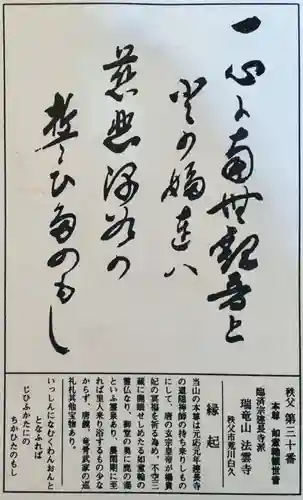 一心に南無観音と
となふれば
慈悲深谷の
誓ひたのもし
秩父 第三十番
本尊 如意輪観世音
臨済宗建長寺派
瑞竜山 法雲寺
秩父市荒川白久
縁起
当山の本尊は元応元年建長寺
の道隠禅師の持ち来りしもの
にして、唐の玄宗皇帝が楊貴
妃の冥福を祈る為め、不空三
蔵に開眼せしめたる如意輪の
霊仏なり、御堂の奥に鹿の湯
といふ霊泉あり、農閑期に至
れば里人来り浴するもの少な
からず、唐鏡、竜骨武家の巡
礼札其他宝物あり。
いっしんになむくわんおんと
となふれば
じひふかたにの
ちかひたのもし